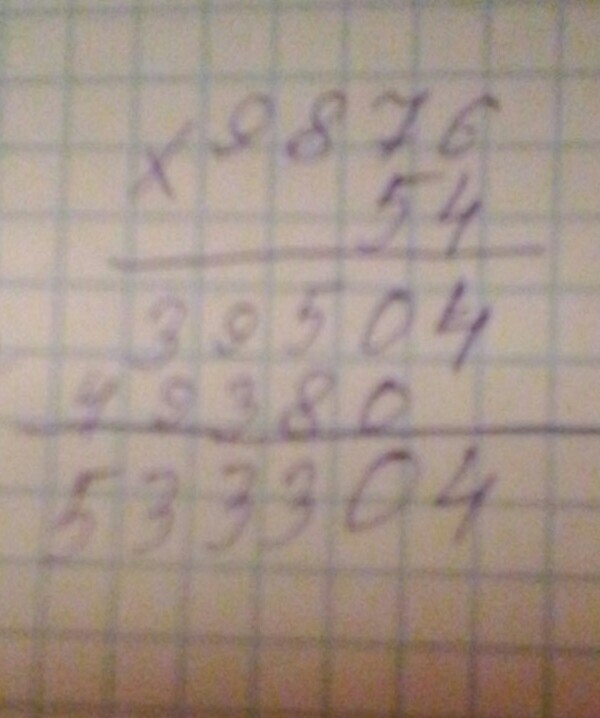 × 9876
54
39504
49380
533304